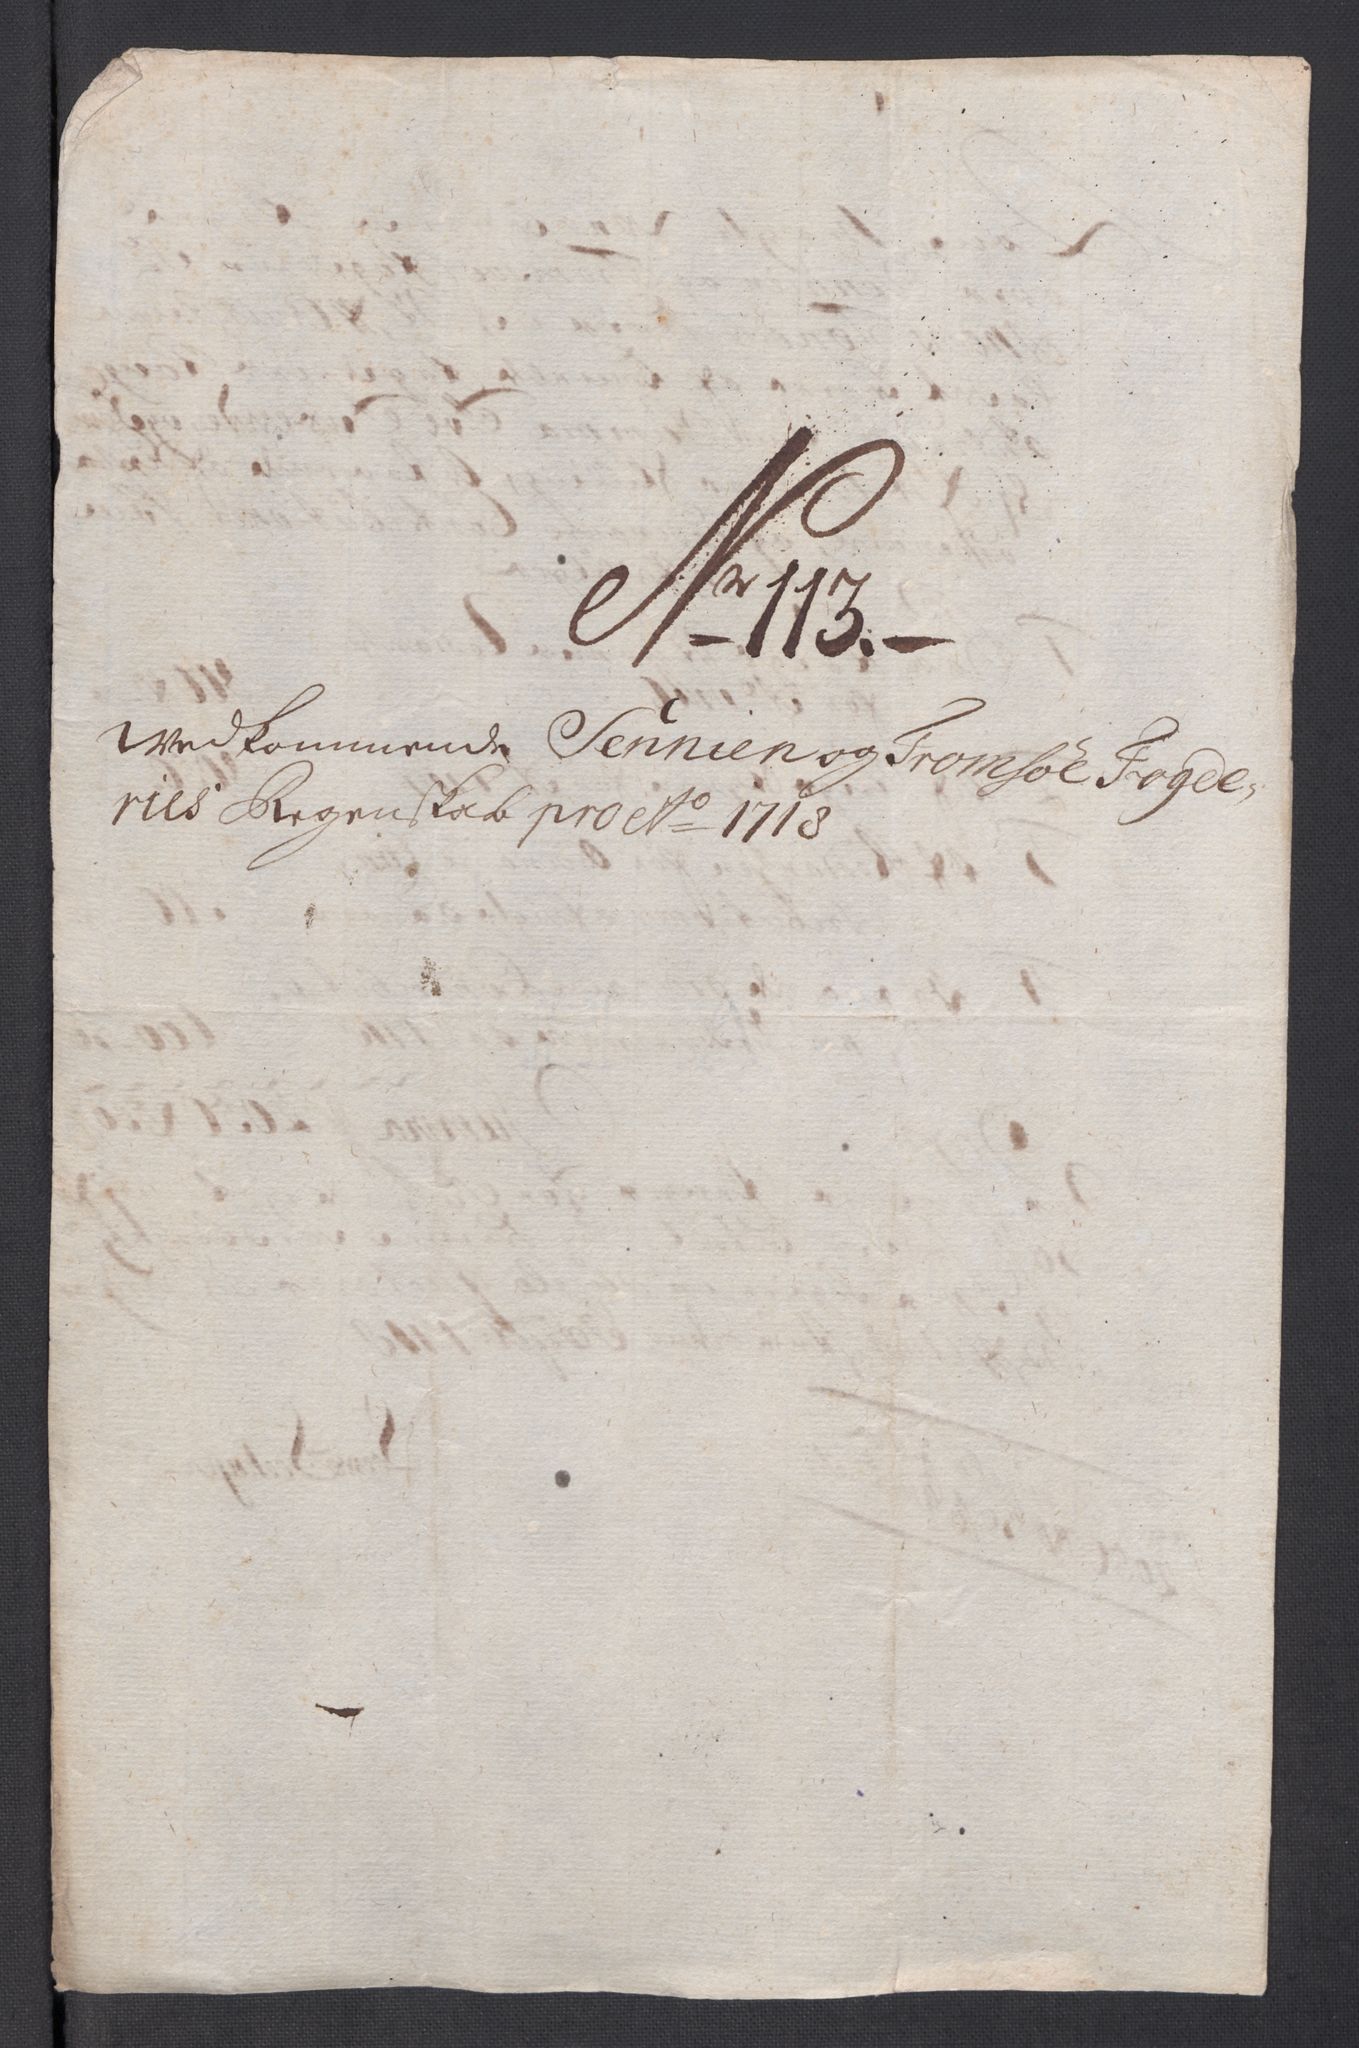 Nr 113.
Wedkommende Sennien og Tromsöe Fogde-
ries Regenskab pro Ao 1718